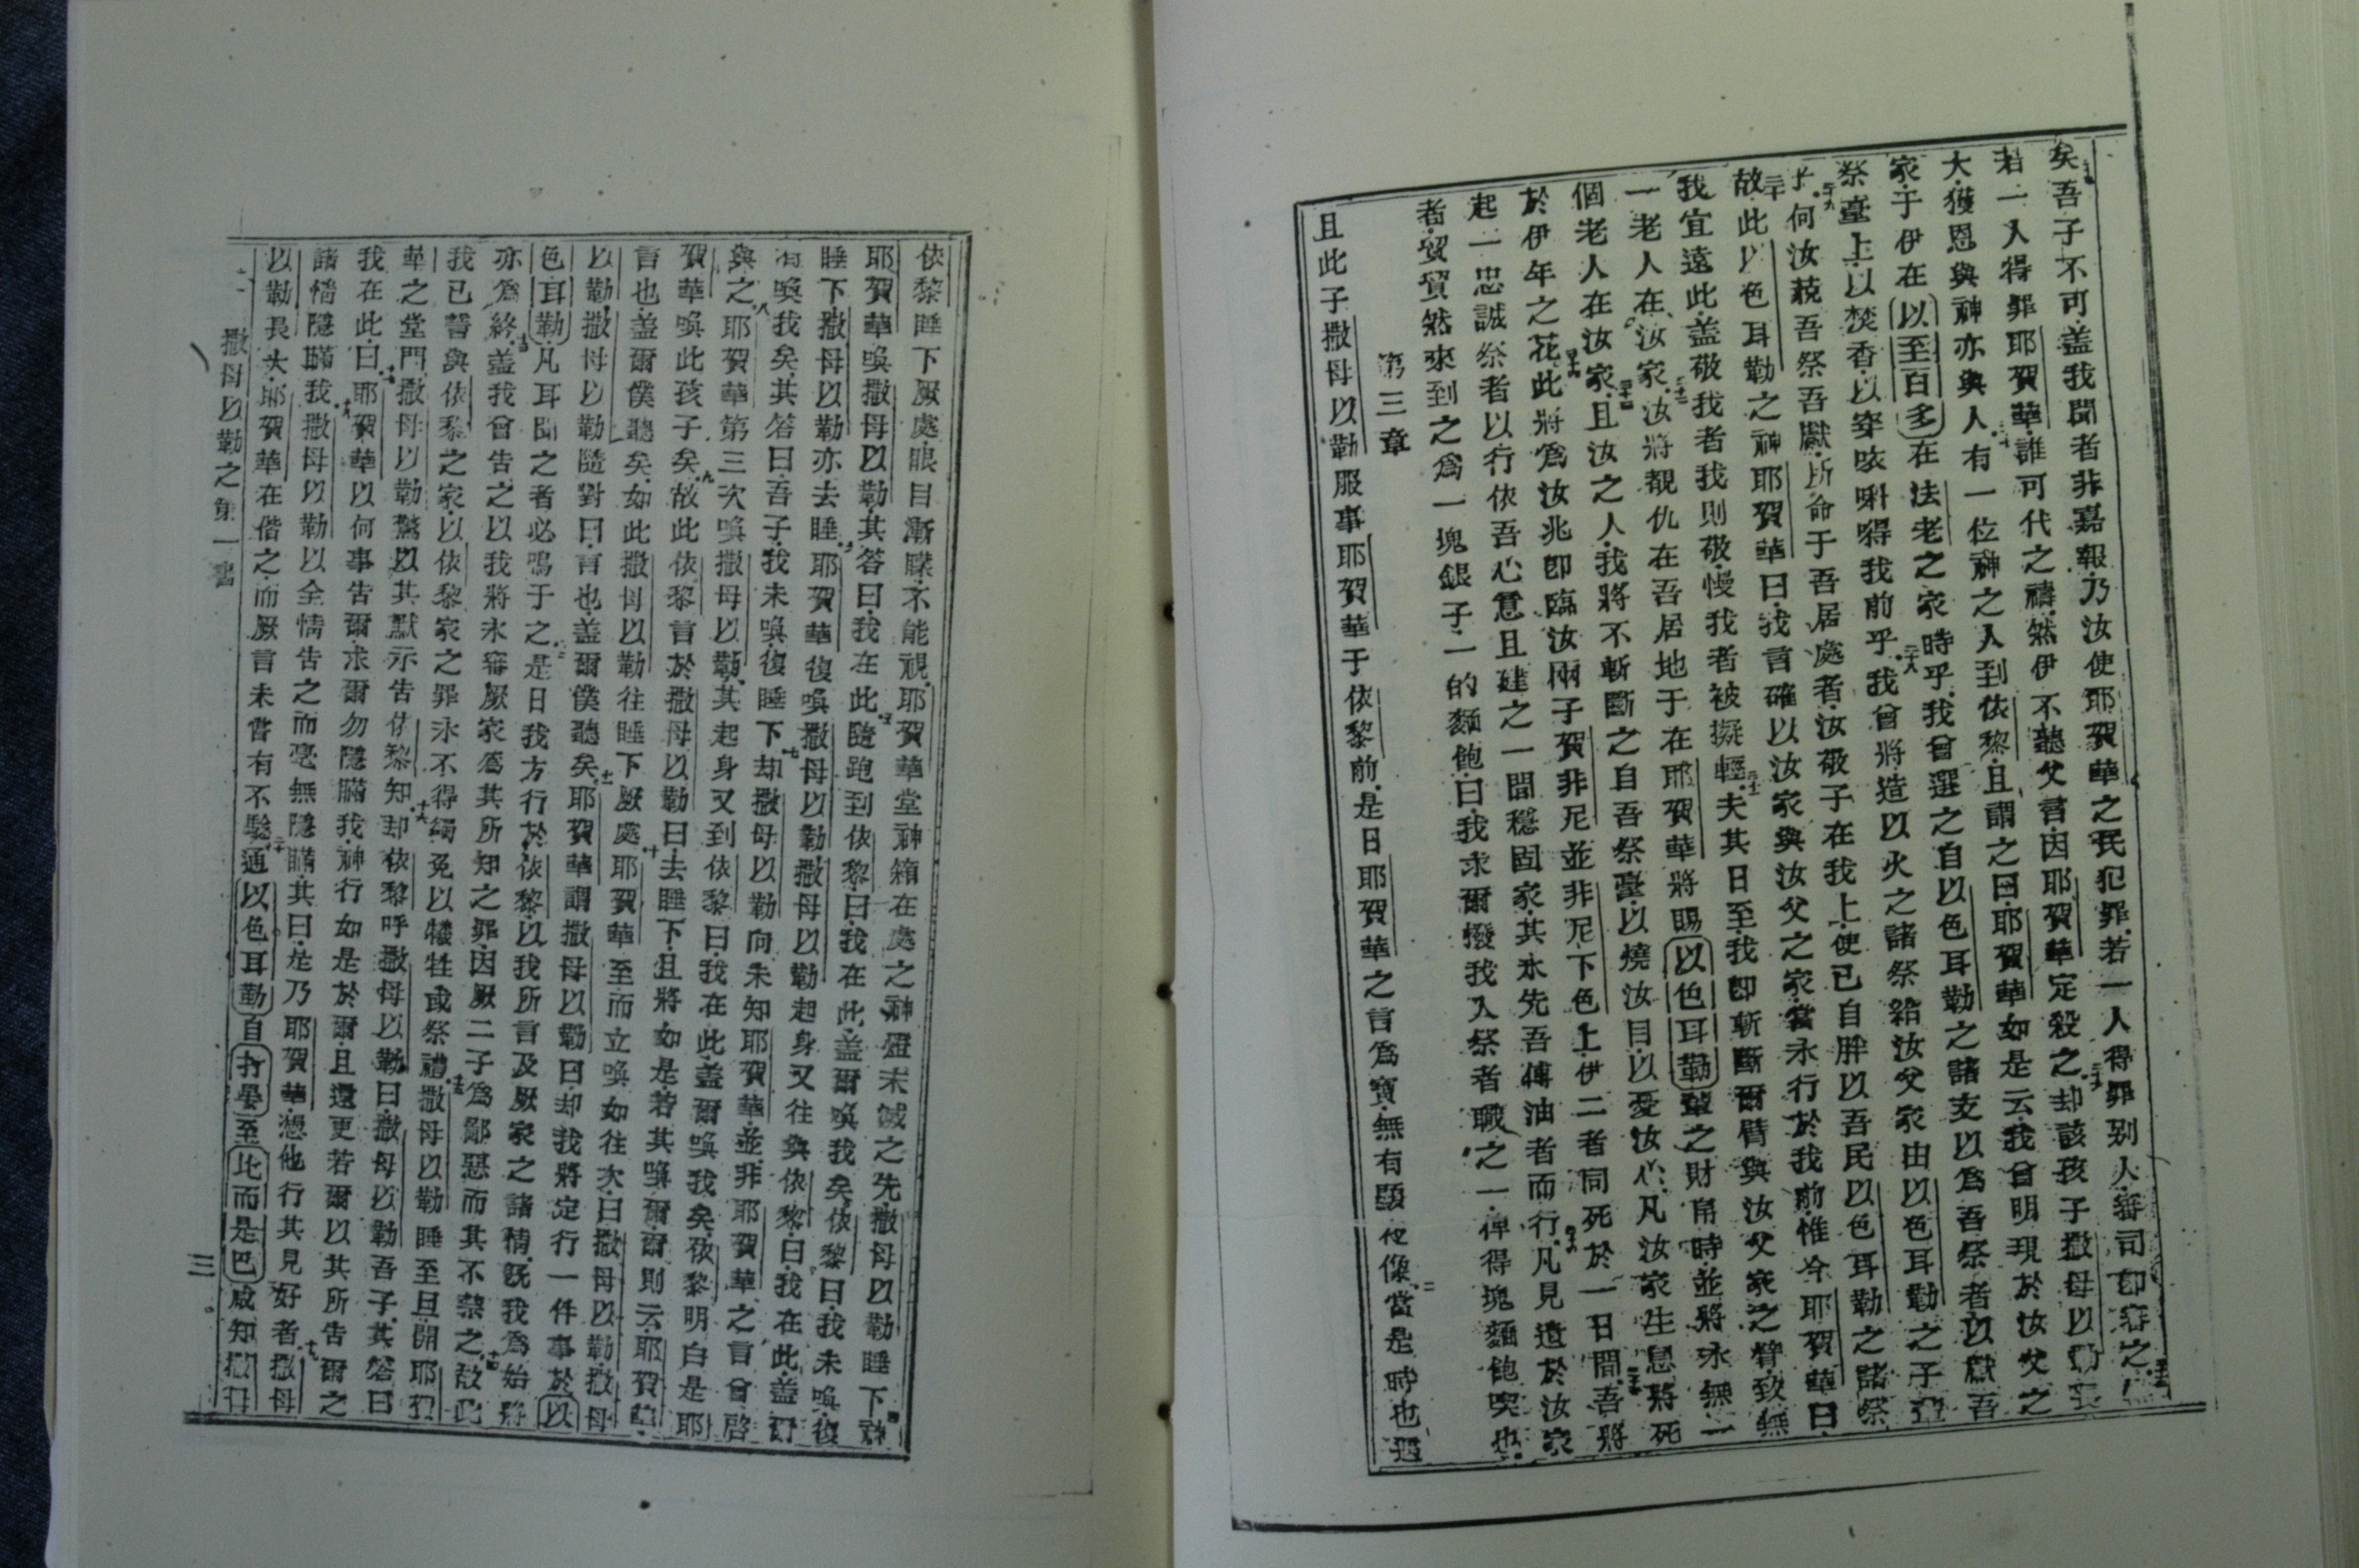 矣吾子不可盖我聞者非嘉報乃汝使耶賀華之民犯罪若一人得罪别人審司卽審之
若一人得罪耶賀華誰可代之禱然伊不聽父言因耶賀華定殺之却該孩子撒母以勒長
大獲恩與神亦與人有一位神之人到依黎且謂之曰耶賀華如是云我曾明現於汝父之
家于伊在以至百多在法老之家時乎我曾選之自以色耳勒之諸支以爲吾祭者以獻吾
祭臺上以焚香以穿咴唎㗂我前乎我曾將造以火之諸祭給汝父家由以色耳勒之子
何汝藐吾祭吾獻所命于吾居處者汝敬子在我上使已自胖以吾民以色耳勒之諸祭
故此以色耳勒之神耶賀華曰我言確以汝家與汝父之家當永行於我前惟今耶賀華曰
我宜遠此盖敬我者我則敬慢我者被擬輕夫其日至我卽斬斷爾臂與汝父家之臂致無
一老人在汝家汝將覩仇在吾居地于在耶賀華將賜以色耳勒輩之財帛時並將永無一
個老人在汝家且汝之人我將不斬斷之自吾祭臺以燒汝目以憂汝心凡汝家生息將死
於伊年之花此將爲汝兆卽臨汝兩子賀非尼並非尼下色上伊二者同死於一日間吾將
起一忠誠祭者以行依吾心意且建之一間穩固家其永先吾傅油者而行凡見遺於汝家
者貿貿然來到之爲一塊銀子一的麵飽曰我求爾撥我入祭者職之一俾得塊麵飽喫也
第三章
且此子撒母以勒服事耶賀華于依黎前是日耶賀華之言爲寶無有顯化像當是時也
依黎睡下厥處眼目漸矇不能視耶賀華堂神箱在處之神燈未滅之先撒母以勒睡下
耶賀華喚撒母以勒其答曰我在此隨跑到依黎曰我在此盖爾喚我矣依黎曰我未喚復
睡下撒母以勒亦去睡耶賀華復喚撒母以勒撒母以勒起身又往與依黎曰我在此盖爾
有喚我矣其答曰吾子我未喚復睡下却撒母以勒向未知耶賀華並非耶賀華之言曾啓
與之耶賀華第三次喚撒母以勒其起身又到依黎曰我在此盖爾喚我矣依黎明白是耶
賀華喚此孩子矣故此依黎言於撒母以勒曰去睡下且將如是若其喚爾爾則云耶賀華
言也盖爾僕聽矣如此撒母以勒往睡下厥處耶賀華至而立喚如往次曰撒母以勒撒母
以勒撒母以勒隨對曰言也盖爾僕聽矣耶賀華謂撒母以勒曰却我將定行一件事於以
色耳勒凡耳聞之者必鳴于之是日我方行於依黎以我所言及厥家之諸情旣我爲始將
亦爲終盖我曾告之以我將永審厥家爲其所知之罪因厥二子爲鄙惡而其不禁之故此
我已誓與依黎之家以依黎家之罪永不得蠲免以犧牲或祭禮撒母以勒睡至旦開耶賀
華之堂門撒母以勒驚以其默示告依黎知却依黎呼撒母以勒曰撒母以勒吾子其答曰
我在此曰耶賀華以何事告爾求爾勿隱瞞我神行如是於爾且還更若爾以其所告爾之
諸情隱瞞我撒母以勒以全情告之而毫無隱瞞其曰是乃耶賀華憑他行其見好者撒母
以勒長大耶賀華在偕之而厥言未嘗有不驗通以色耳勒自打晏至比而是巴咸知撒母
撒母以勒之第一書
三